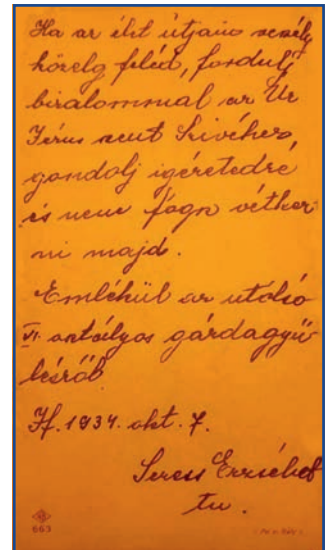 Ha az élet útjain veszély
közelg feléd, fordulj
bizalommal az Úr
Jézus szent Szivéhez,
gondolj igéretedre
és nem fogsz vétkez-
ni majd.
Emlékül az utolsó
VI. osztályos gárdagyű-
lésről
Hf. 1934. okt. 7.
Seress Erzsébet
tu.
663